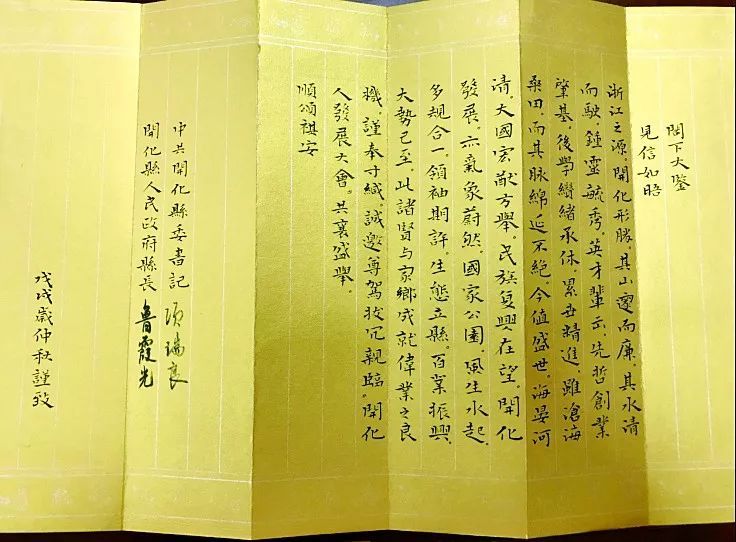 閣下大鑒
見信如晤
浙江之源，開化形勝。其山邃而廉，其水清
而駛，鍾靈毓秀，英才輩出。先哲創業
肇基，後學繼緒承休，累世精進，雖滄海
桑田，而其脉綿延不絕。今值盛世，海晏河
清，大國宏猷方舉，民族复興在望。開化
發展，亦氣象蔚然。國家公園，風生水起。
多規合一，領袖期許。生態立縣，百業振興。
大勢已至，此諸賢与家鄉成就偉業之良
機。謹奉寸緘，誠邀尊駕拔冗親臨開化
人發展大會。共襄盛舉。
順頌祺安
中共開化縣委書記 項瑞良
開化縣人民政府縣長 魯霞光
戊戌歲仲秋謹致